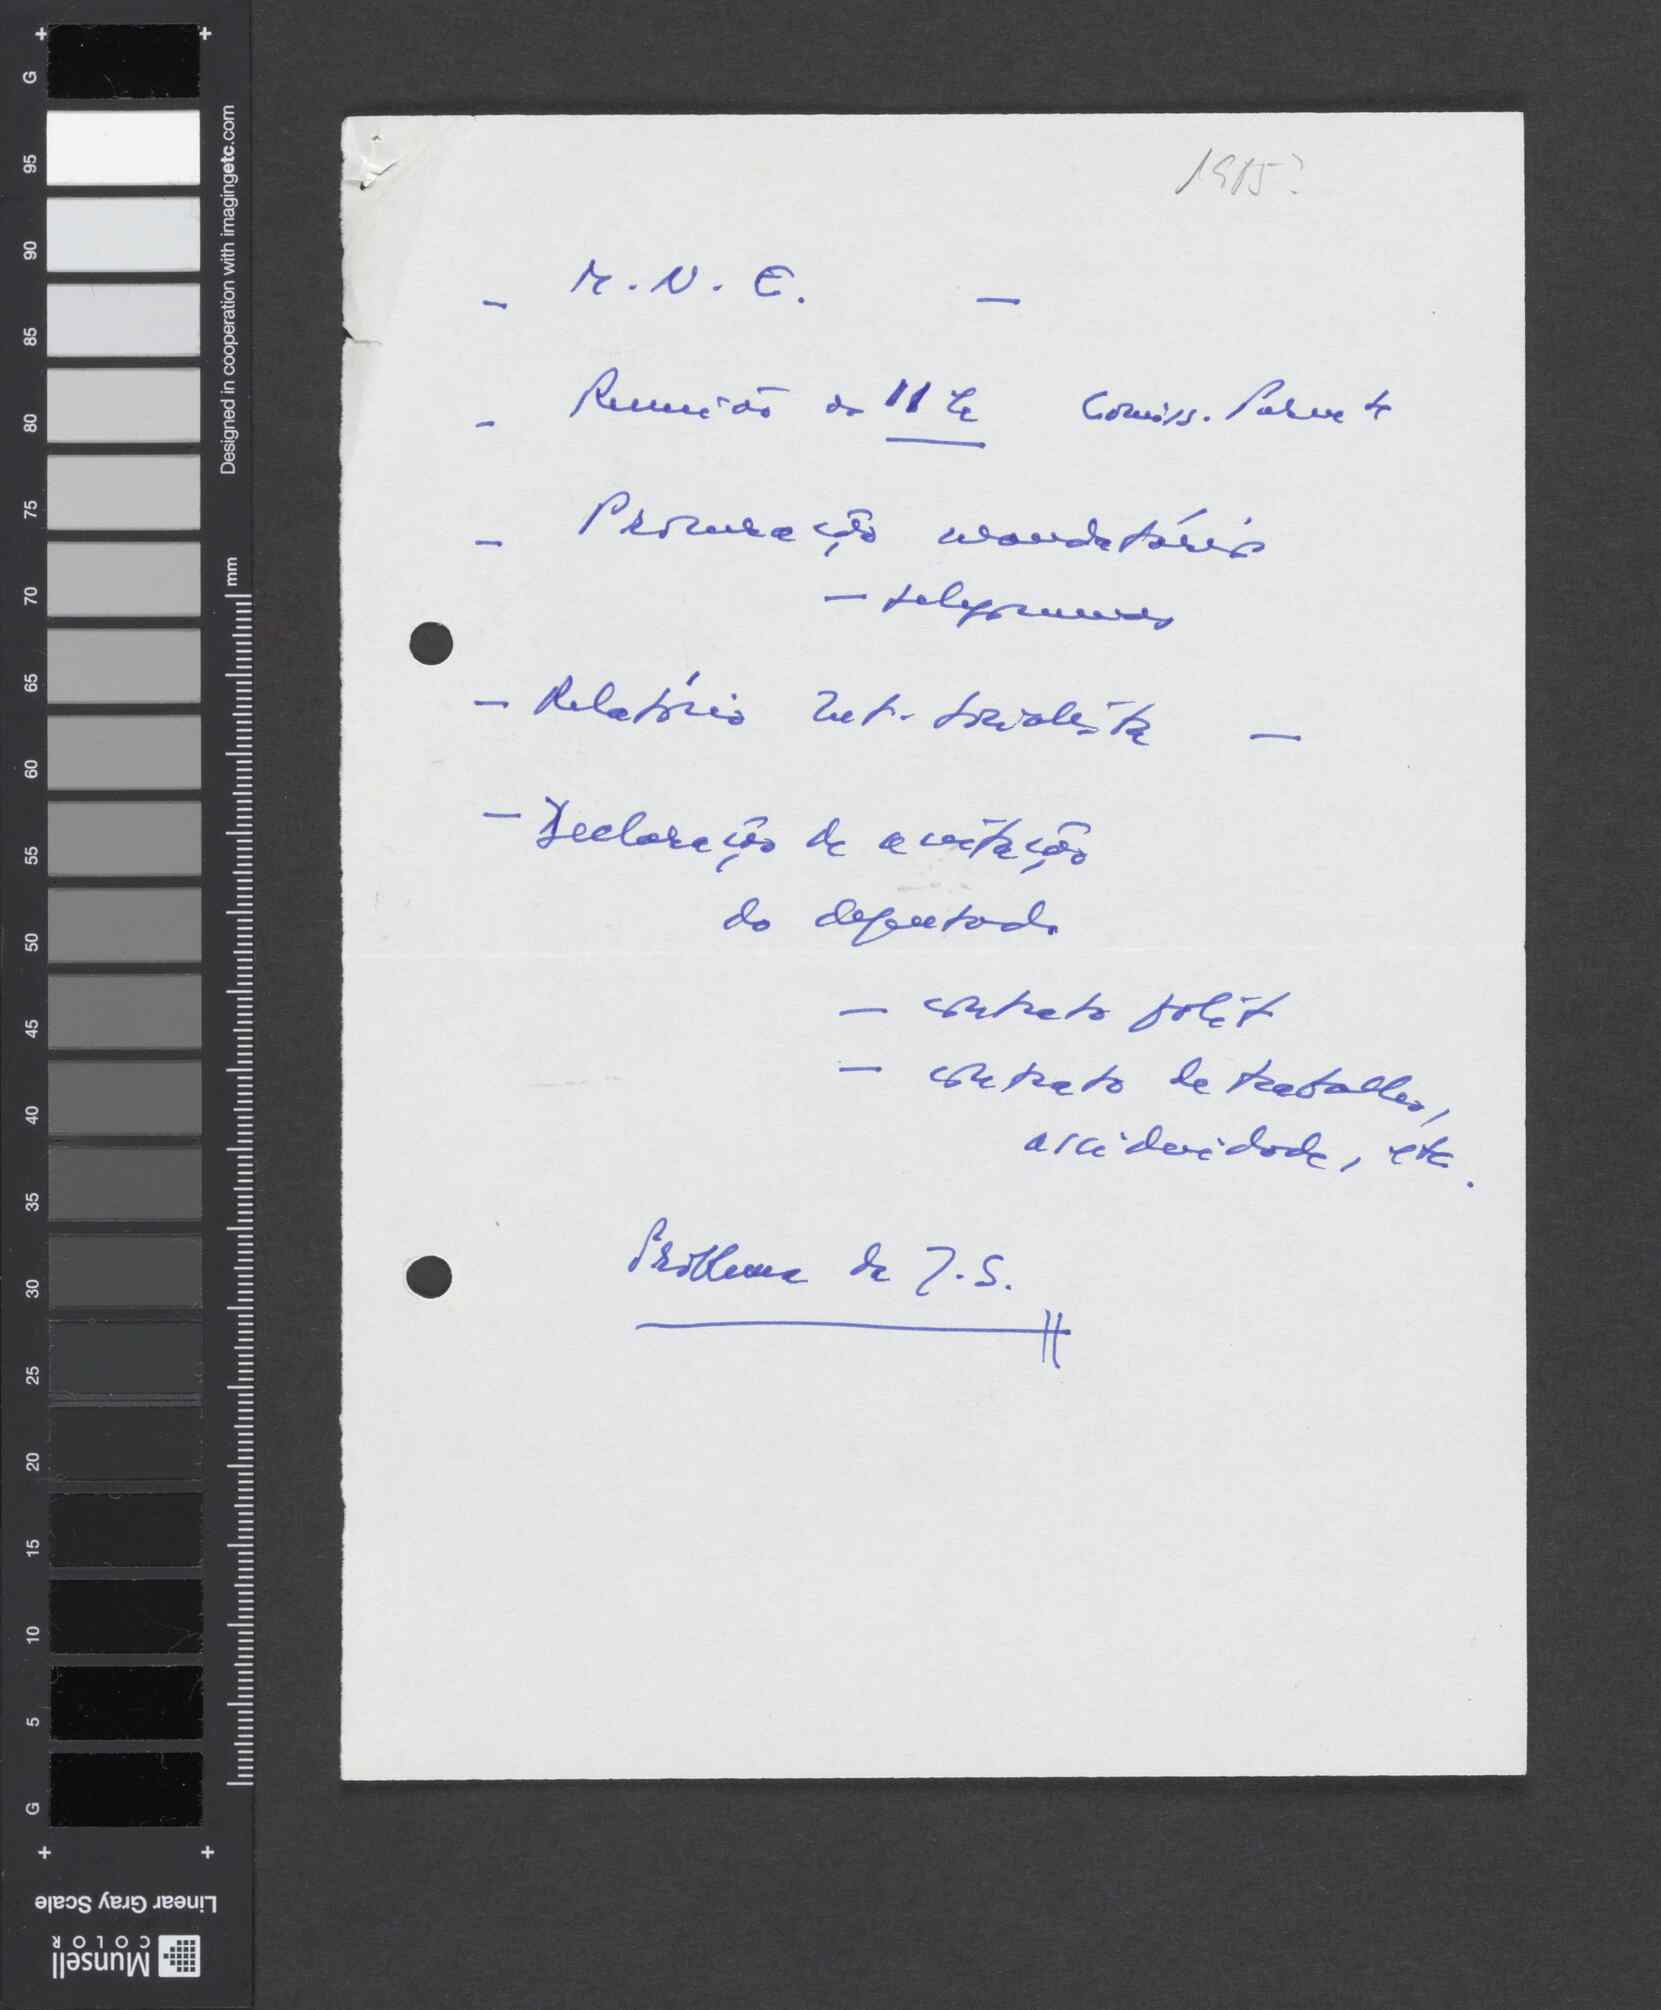 1985?
- M.N.E. -
- Reunião da 11 h Comiss. Perm te
- Procuração mandatário
- telegramas
- Relatório Int. Socialista -
- Declaração de aceitação
do deputado
- contrato polít
- contrato de trabalho,
assiduidade, etc.
Problema da J.S.
G
95
90
85
80
75
70
65
60
55
50
45
40
35
30
25
20
15
10
5
G
Designed in cooperation with imagingetc.com
mm
Linear Gray Scale
Munsell
COLOR